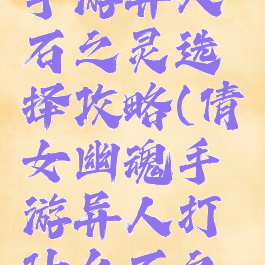 手游异人
石之灵选
择攻略(倩
女幽魂手
游异人打